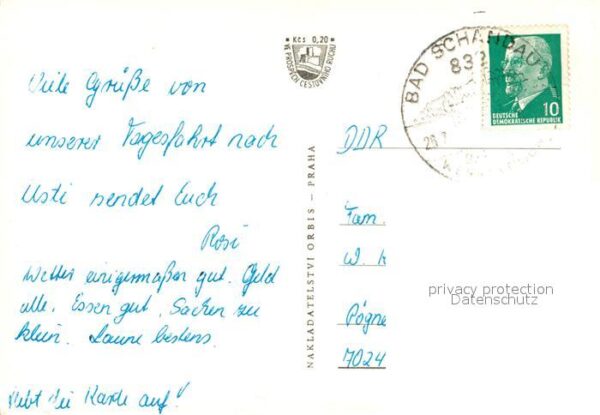 Viele Grüße von
unserer Tagesfahrt nach
Usti sendet Euch
Rosi
Wetter einigermaßen gut. Geld
alle, Essen gut, Sachen zu
klein. Laune bestens.
Hebt die Karte auf!
Kčs 0,20
VE PROSPĚCH CESTOVNÍHO RUCHU
NAKLADATELSTVÍ ORBIS – PRAHA
BAD SCHANDAU
832
28.7.
10
DEUTSCHE
DEMOKRATISCHE REPUBLIK
DDR
Fam.
W. K
privacy protection
Datenschutz
Pögne
7024